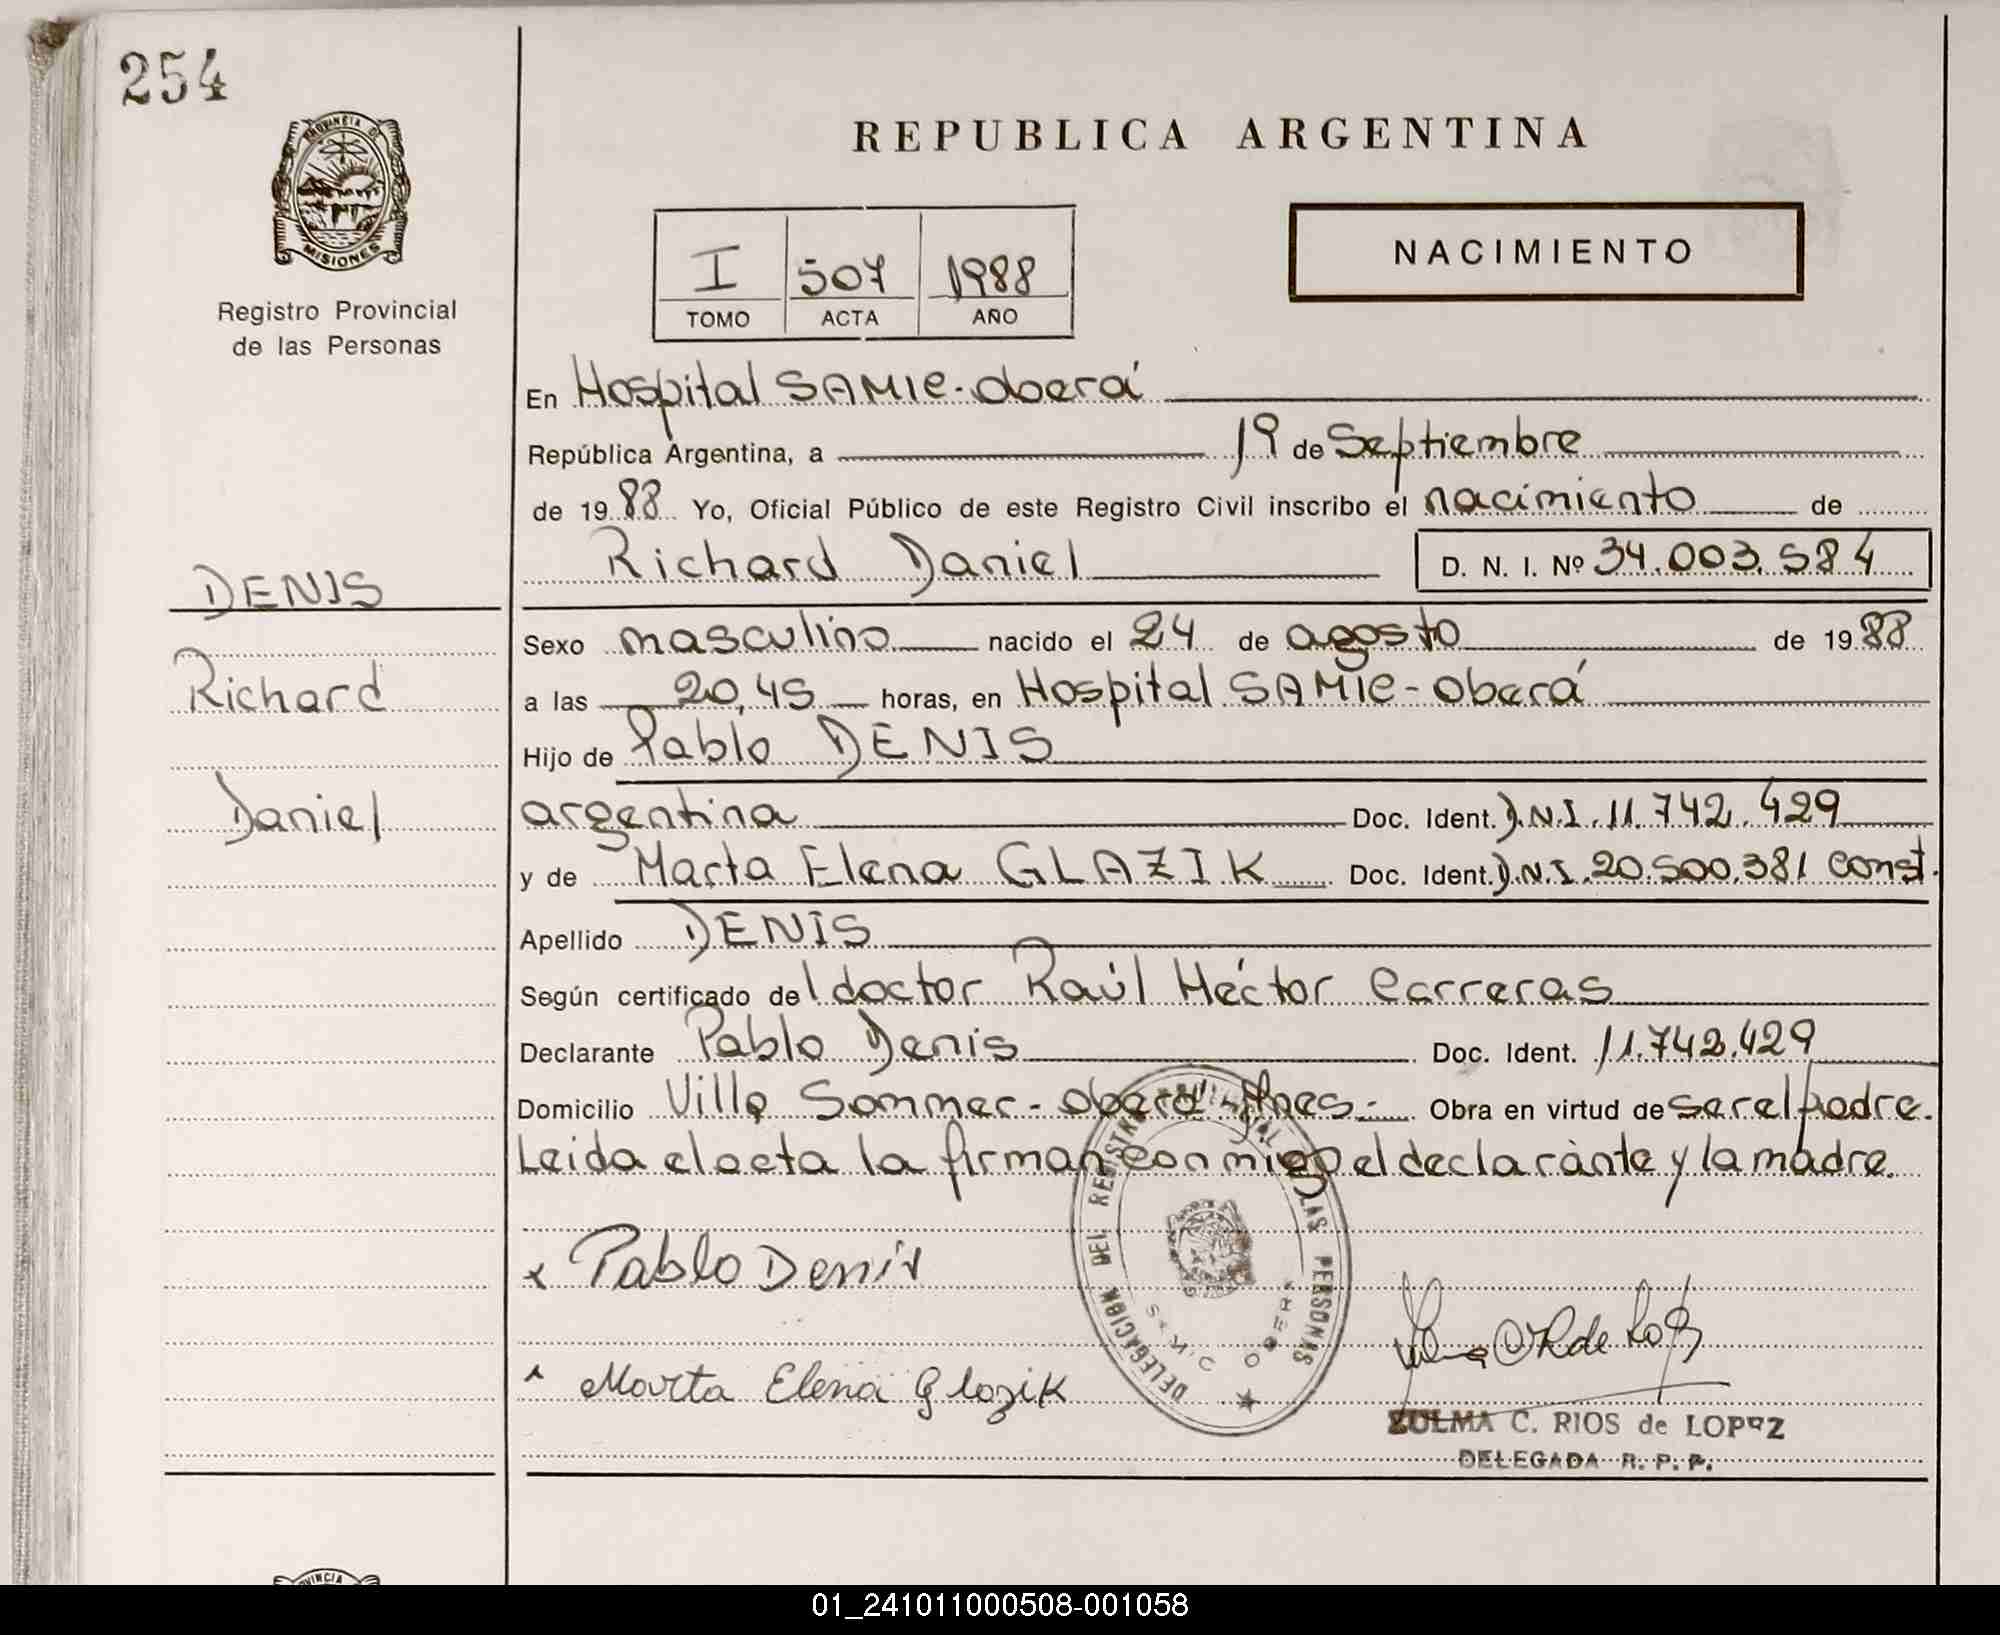 254
PROVINCIA DE
MISIONES
Registro Provincial
de las Personas
REPUBLICA ARGENTINA
I 507 1988
TOMO ACTA AÑO
NACIMIENTO
En Hospital SAMIC - oberá
República Argentina, a 19 de Septiembre
de 1988 Yo, Oficial Público de este Registro Civil inscribo el nacimiento de
Richard Daniel D. N. I. Nº 34.003.584
DENIS
Richard
Daniel
Sexo masculino nacido el 24 de agosto de 1988
a las 20,45 horas, en Hospital SAMIC - oberá
Hijo de Pablo DENIS
argentina Doc. Ident. D.N.I. 11.742.429
y de Marta Elena GLAZIK Doc. Ident. D.N.I. 20.500.381 const.
Apellido DENIS
Según certificado del doctor Raúl Héctor Carreras
Declarante Pablo Denis Doc. Ident. 11.742.429
Domicilio Villa Sommer - oberá - Mnes - Obra en virtud de ser el padre.
Leida el acta la firman conmigo el declarante y la madre.
x Pablo Denis
Marta Elena Glazik
DELEGACION DEL REGISTRO PROVINCIAL DE LAS PERSONAS
OBERA
ZULMA C. RIOS de LOPEZ
DELEGADA R. P. P.
01_241011000508-001058